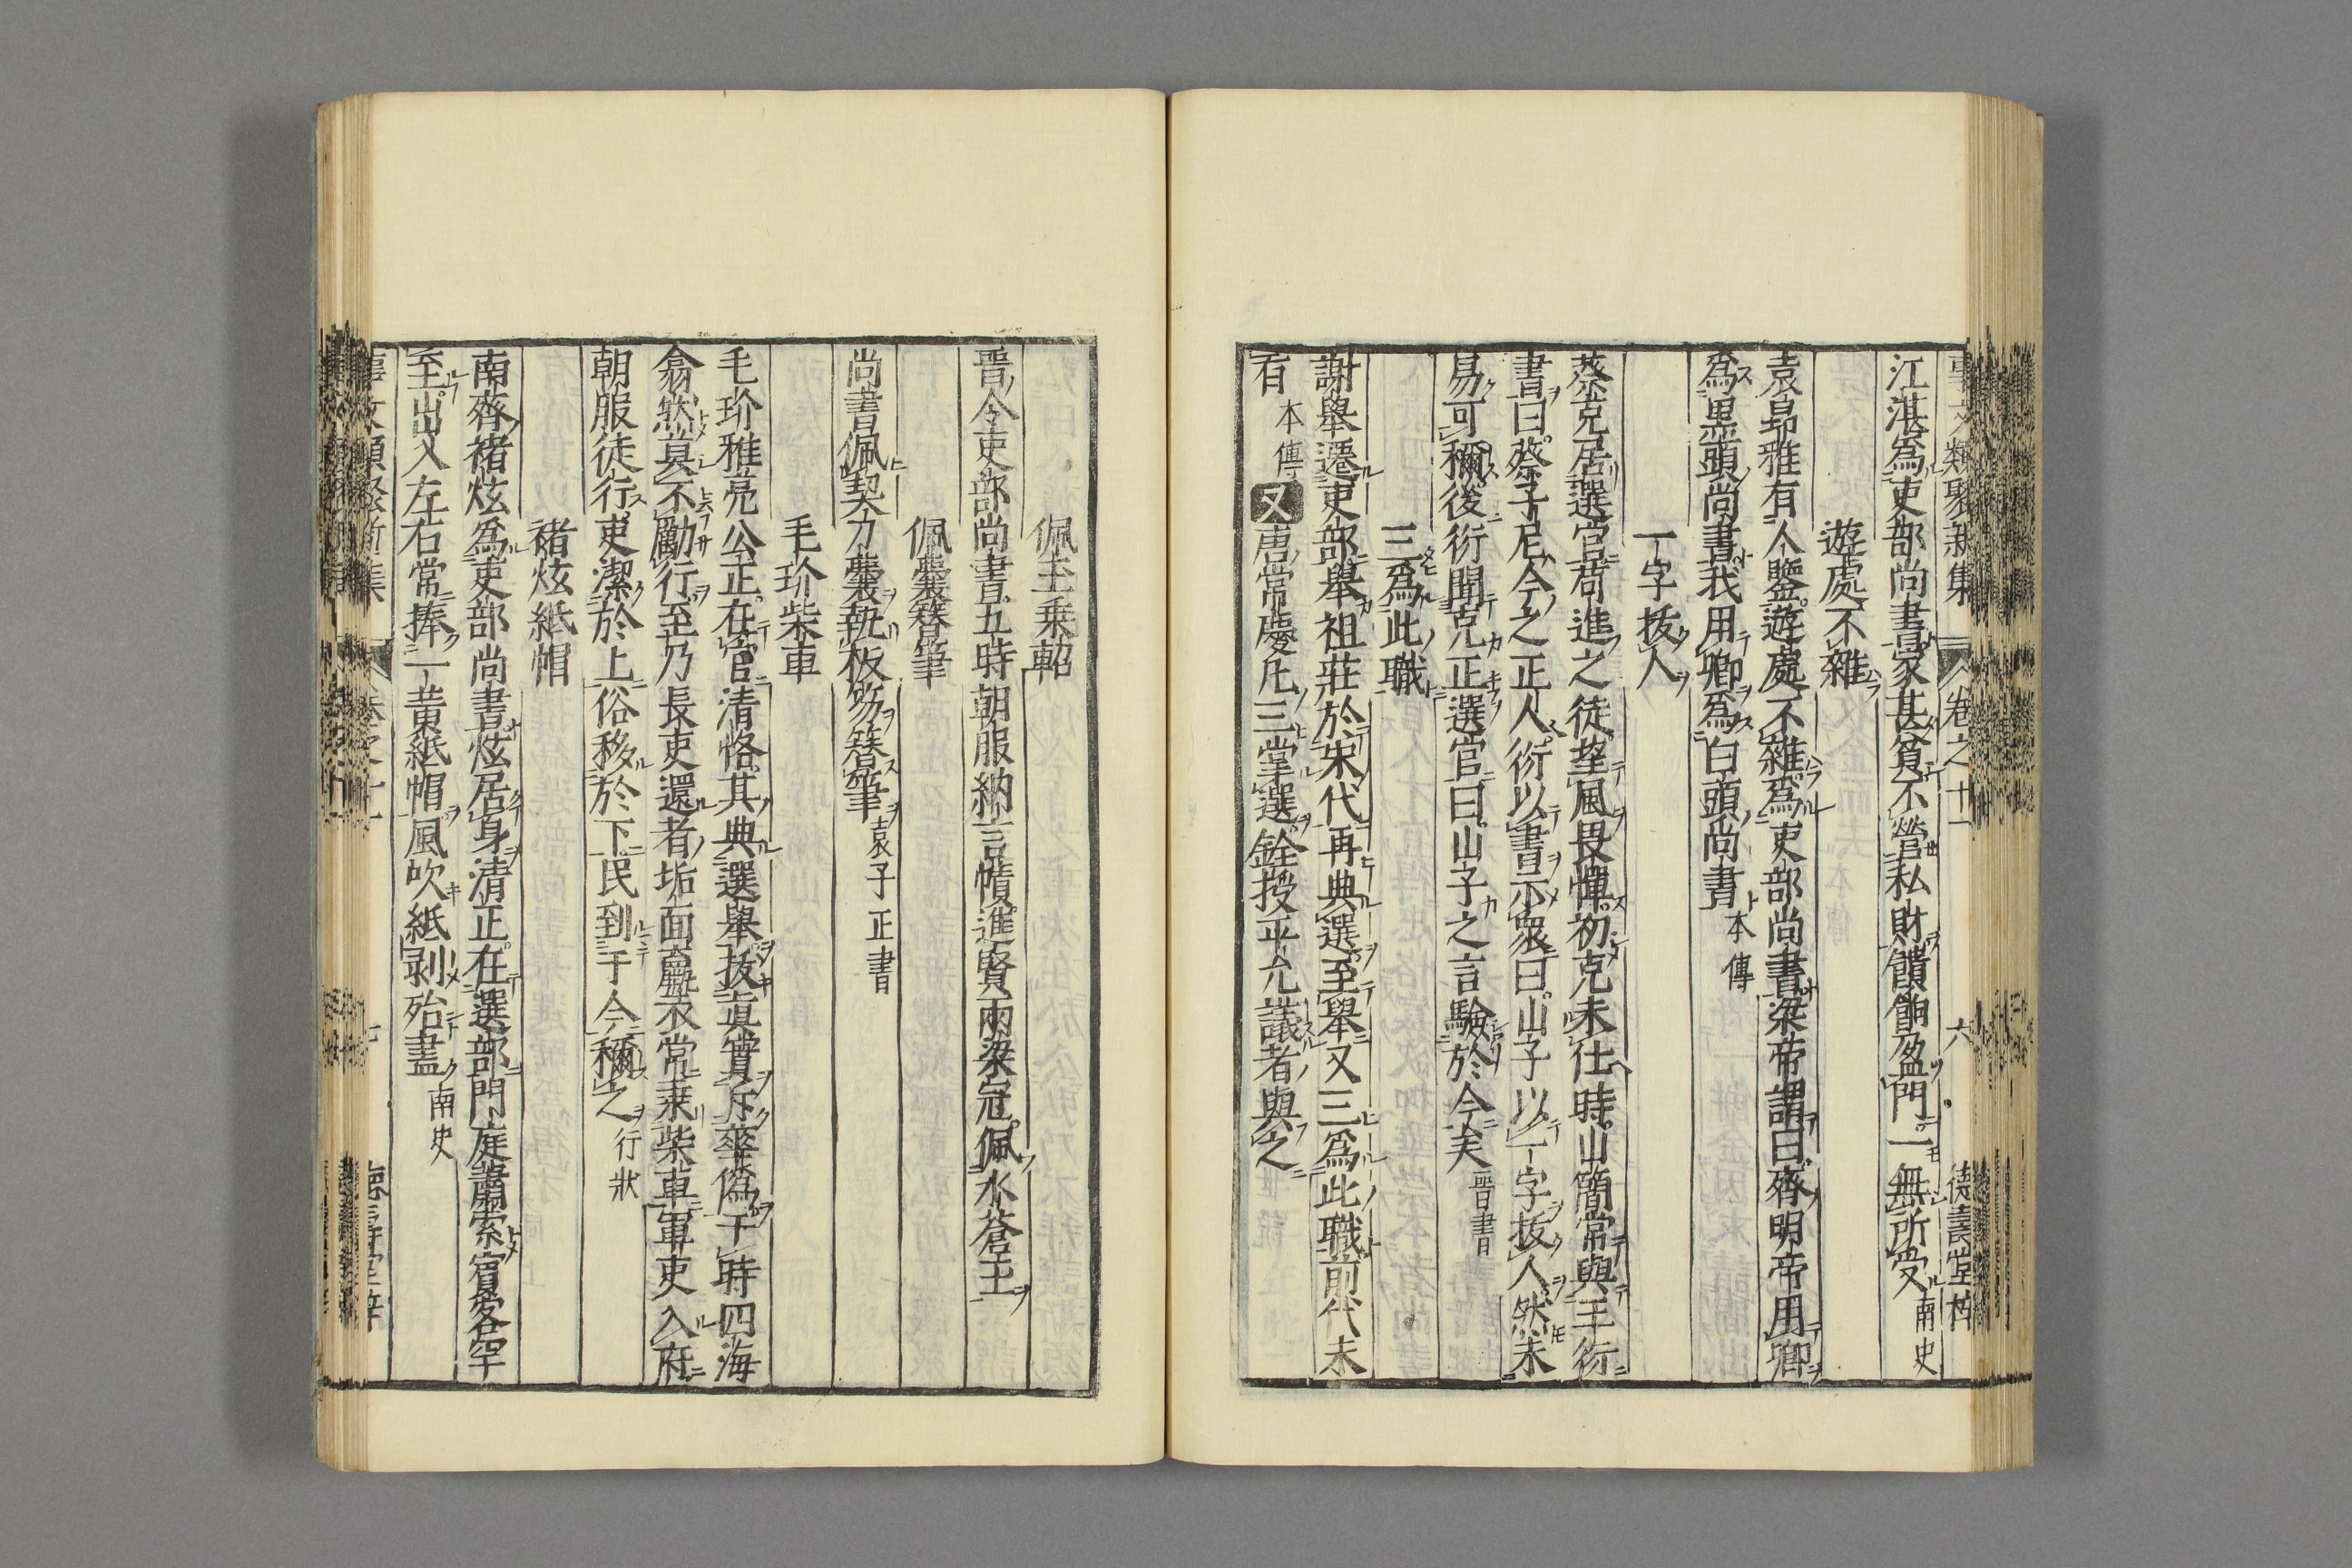 事文類聚新集 卷之十一 六 德壽堂梓
江湛爲吏部尚書家甚貧不營私財饋餉盈門一無所受 南史
遊處不雜
袁昂雅有人鑒遊處不雜爲吏部尚書梁帝謂曰齊明帝用卿
爲黒頭尚書我用卿爲白頭尚書 本傳
一字拔人
蔡克居選官苟進之徒望風畏憚初克未仕時山簡常與王衍
書曰蔡子尼今之正人衍以書示衆曰山子以一字拔人然未
易可稱後衍聞克正選官曰山子之言驗於今矣 晉書
三爲此職
謝舉遷吏部舉祖莊於宋代再典選至舉又三爲此職前代未
有 本傳 又唐常慶凡三掌選銓授平允議者與之
佩玉乗軺
晋令吏部尚書五時朝服納言幘進賢兩梁冠佩水蒼玉
佩囊簪筆
尚書佩契刀囊執板笏簪筆 袁子正書
毛玠柴車
毛玠雅亮公正在官清恪其典選舉抜貞實斥華僞于時四海
翕然莫不勵行至乃長吏還者垢面羸衣常乗柴車軍吏入府
朝服徒行吏潔於上俗移於下民到于今稱之 行狀
褚炫紙帽
南齊褚炫爲吏部尚書炫居身清正在選部門庭蕭索賓客罕
至出入左右常捧一黄紙帽風吹紙剥殆盡 南史